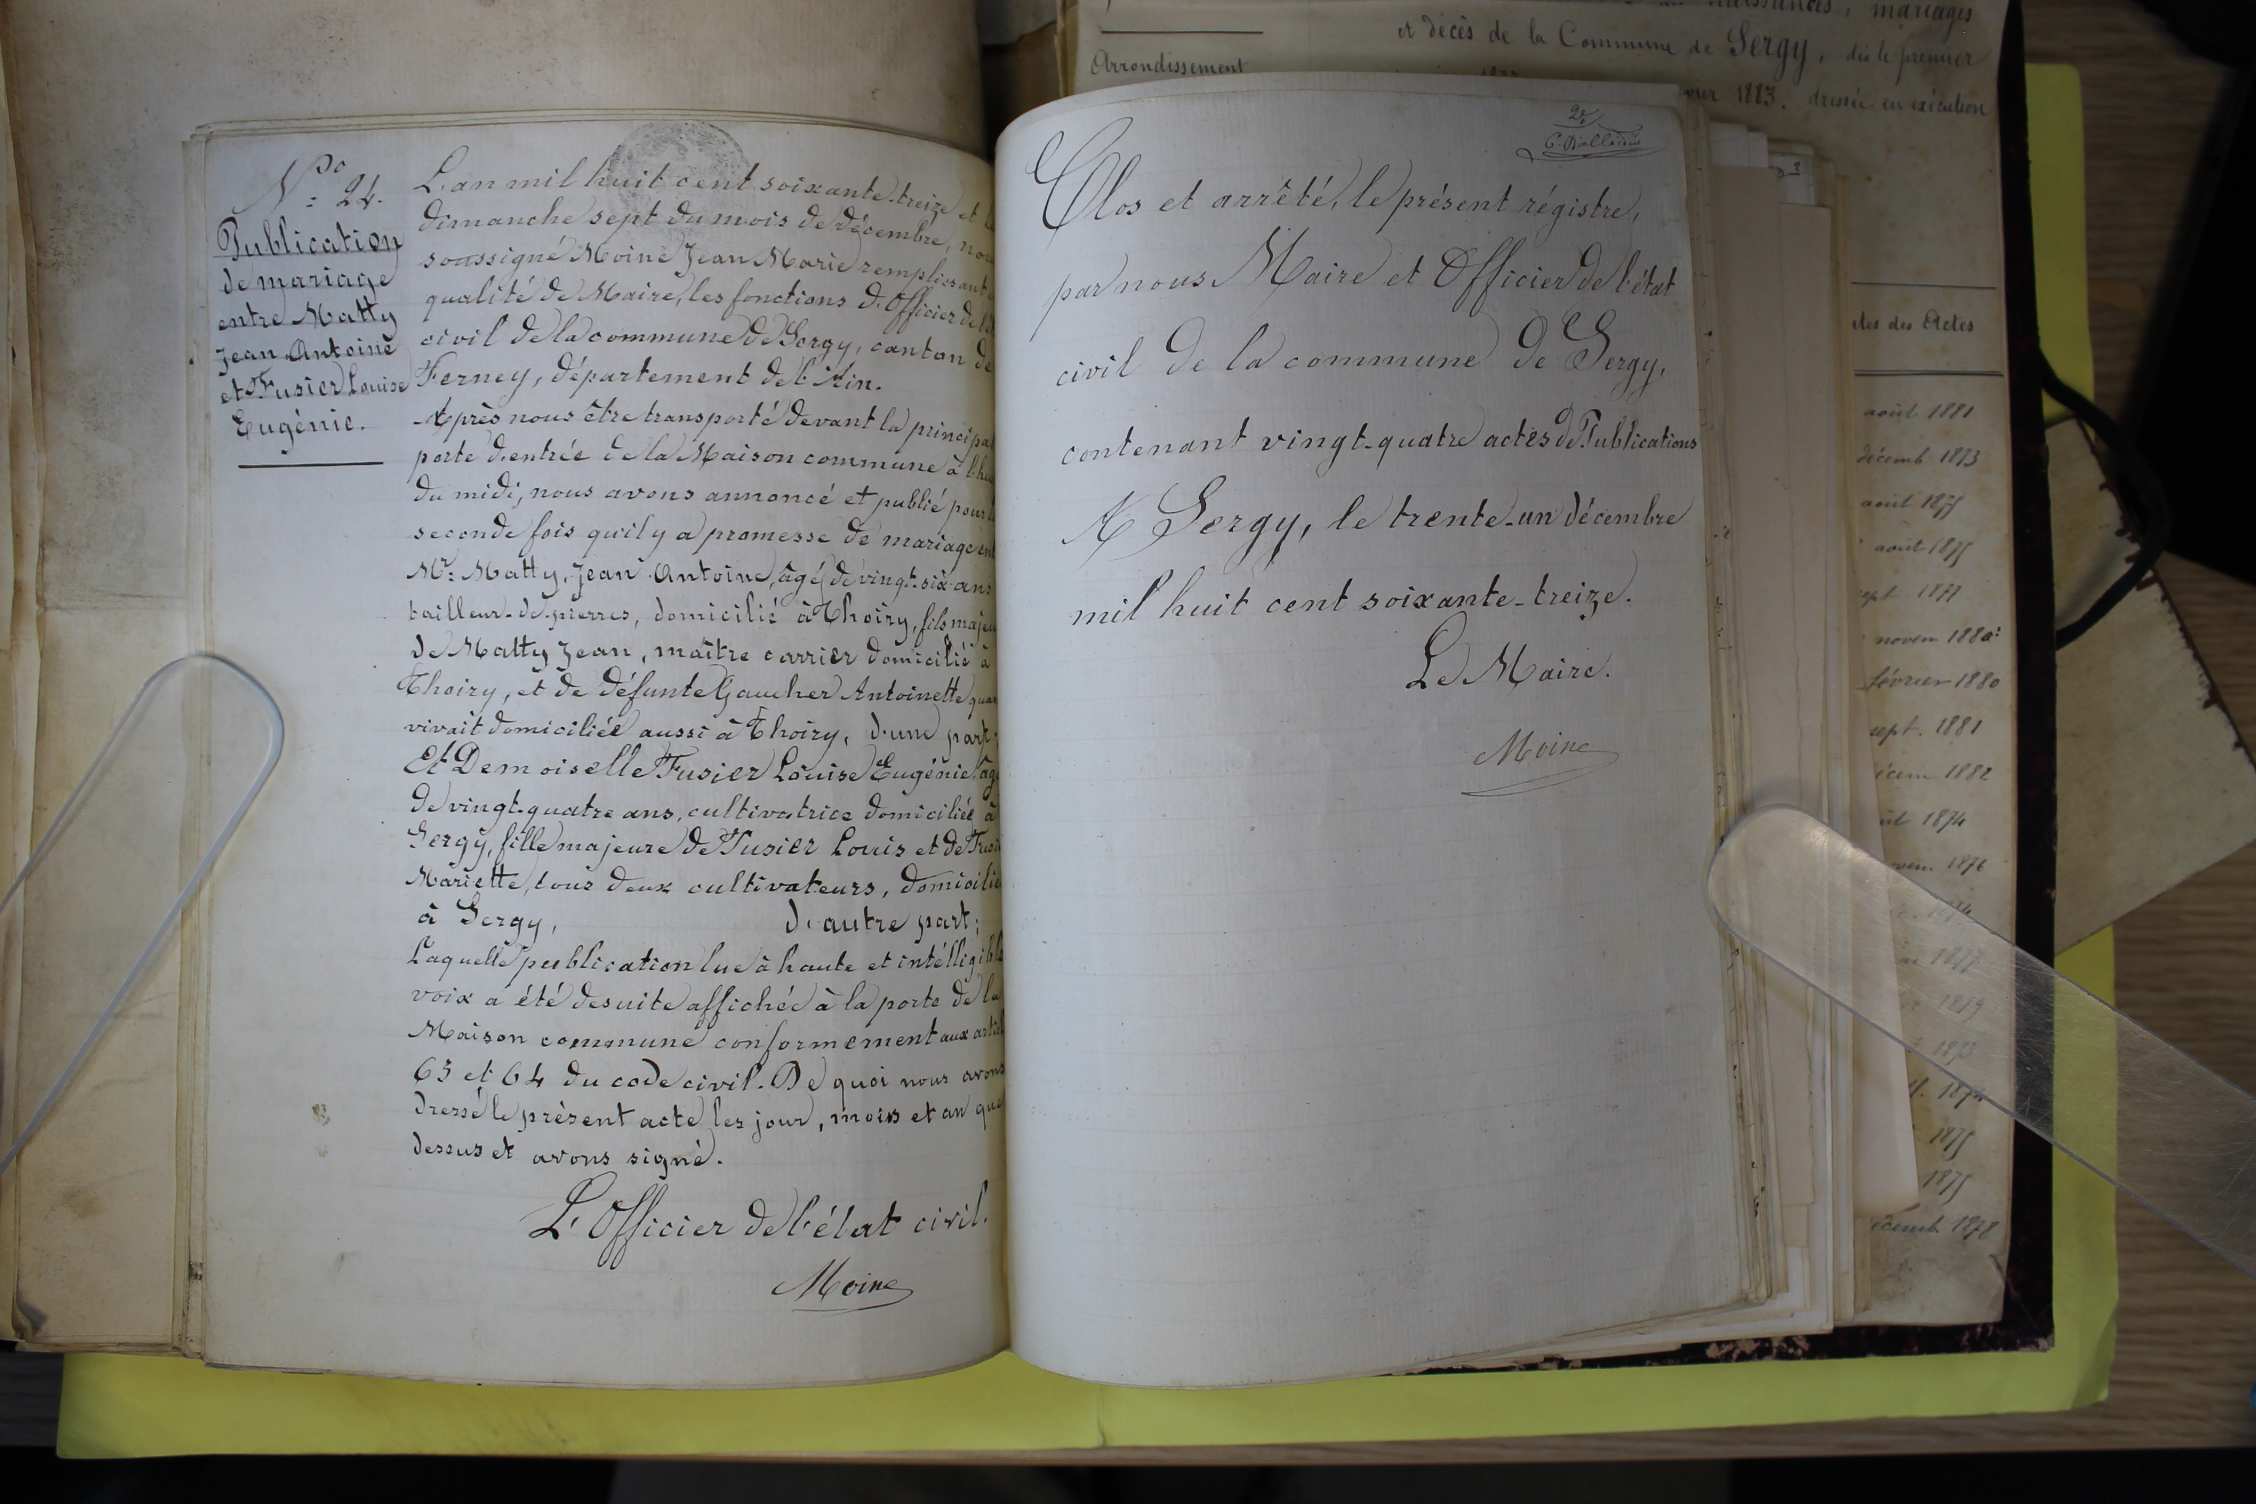 No: 24.
Publication
de mariage
entre Matty
Jean Antoine
et Fusier Louise
Eugénie.
L'an mil huit cent soixante-treize et le
dimanche sept du mois de décembre, nous
soussigné Moine Jean Marie remplissant
qualité de Maire, les fonctions d'Officier de l'é
civil de la commune de Sergy, canton de
Ferney, département de l'Ain.
Après nous être transporté devant la principal
porte d'entrée de la Maison commune à l'heu
du midi, nous avons annoncé et publié pour la
seconde fois qu'il y a promesse de mariage ent
Mr: Matty, Jean Antoine, âgé de vingt-six ans
tailleur-de-pierres, domicilié à Thoiry, fils majeur
de Matty Jean, maître carrier domicilié à
Thoiry, et de défunte Gaucher Antoinette quan
vivait domiciliée aussi à Thoiry, d'une part;
Et Demoiselle Fusier Louise Eugénie âgé
de vingt-quatre ans, cultivatrice domiciliée à
Sergy, fille majeure de Fusier Louis et de
Mariette, tous deux cultivateurs, domicilié
à Sergy, d'autre part;
Laquelle publication lue à haute et intélligible
voix a été desuite affichée à la porte de la
Maison commune conformement aux articl
63 et 64 du code civil. De quoi nous avons
dressé le présent acte les jour, mois et an que
dessus et avons signé.
L'Officier de l'état civil.
Moine
Clos et arrêté, le présent régistre,
par nous Maire et Officier de l'état
civil de la commune de Sergy,
contenant vingt-quatre actes de Publications
A Sergy, le trente-un décembre
mil huit cent soixante-treize.
Le Maire.
Moine
naissances, mariages
et décès de la Commune de Sergy, dès le premier
Arrondissement
1883. dressée en exécution
des Actes
août 1881
décemb 1873
août 1875
août 1875
1877
novem 1880
février 1880
sept. 1881
1882
1874
1876
1877
1879
1873
1874
1875
1875
1878